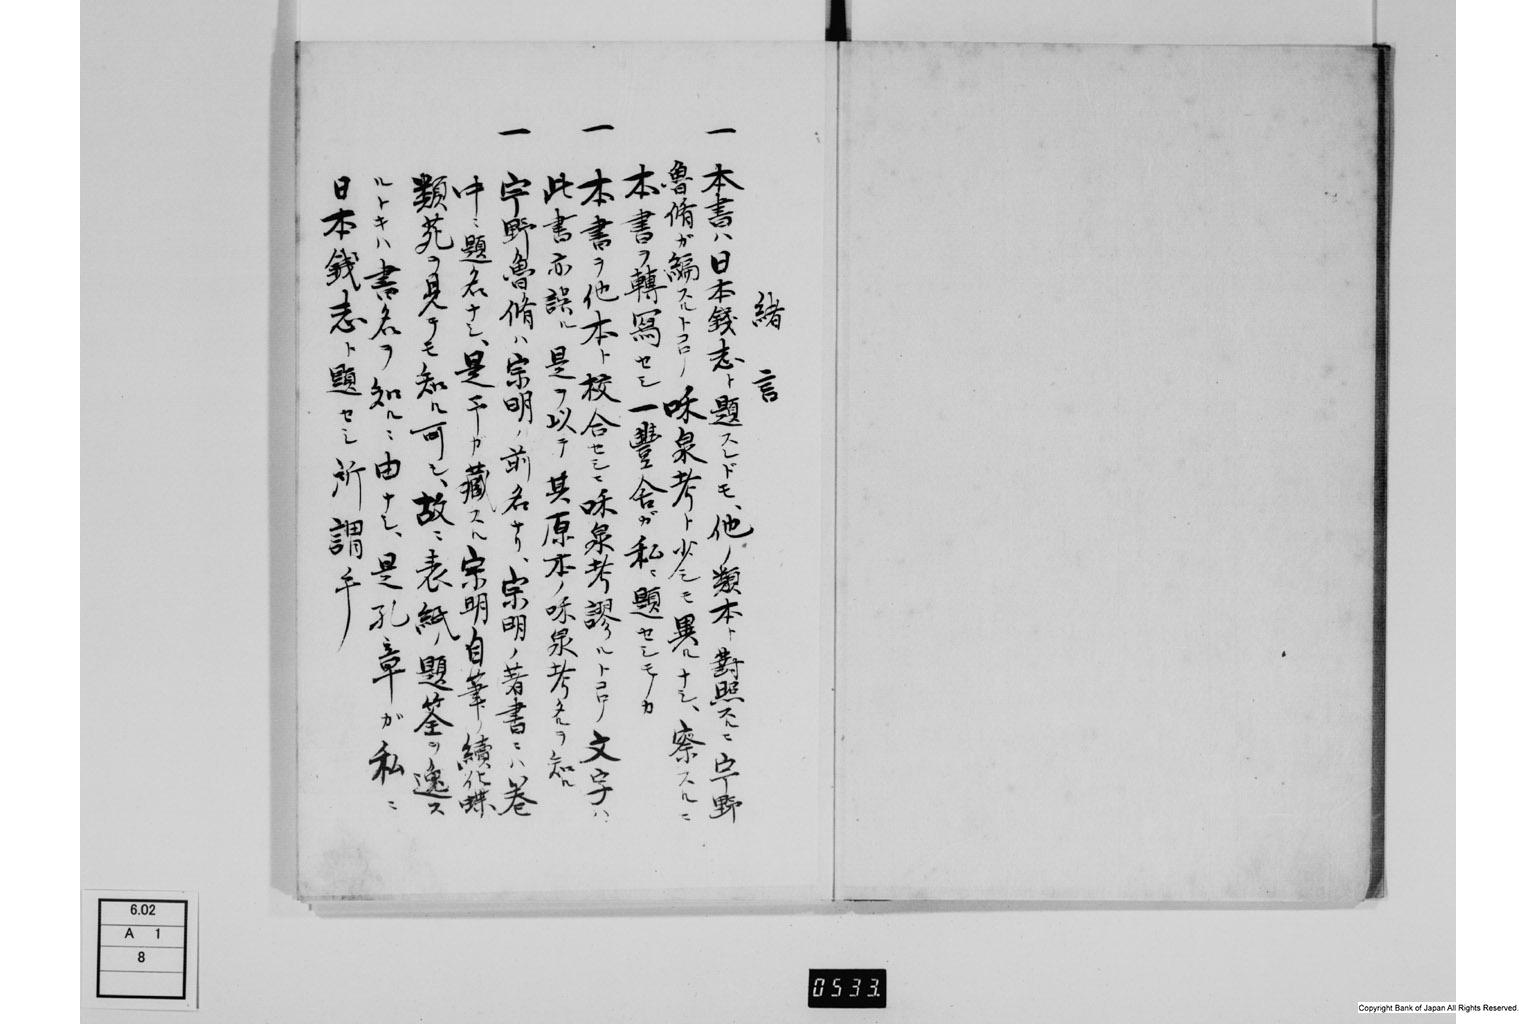 緒言
一 本書ハ日本錢志ト題スレドモ、他ノ類本ト對照スルニ宇野
魯脩ガ編スルトコロノ咊泉考ト少シモ異ルナシ、察スルニ
本書ヲ轉寫セシ一豐舎ガ私ニ題セシモノカ
一 本書ヲ他本ト校合セシニ咊泉考謬ルトコロノ文字ハ
此書亦誤ル是ヲ以テ其原本ノ咊泉考タルヲ知ル
一 宇野魯脩ハ宗明ノ前名ナリ、宗明ノ著書ニハ巻
中ニ題名ナシ、是予カ藏スル宗明自筆ノ續化蝶
類苑ヲ見テモ知ル可シ、故ニ表紙ノ題筌ヲ逸ス
ルトキハ書名ヲ知ルニ由ナシ、是孔章ガ私ニ
日本錢志ト題セシ所謂乎
6.02
A 1
8
0533.
Copyright Bank of Japan All Rights Reserved.